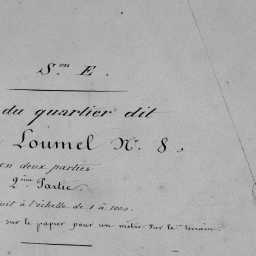 S.on E.
du quartier dit
Loumel N.o 8.
en deux parties
2.ème Partie.
uit à l'échelle de 1 à 1000.
sur le papier pour un mètre sur le terrain.